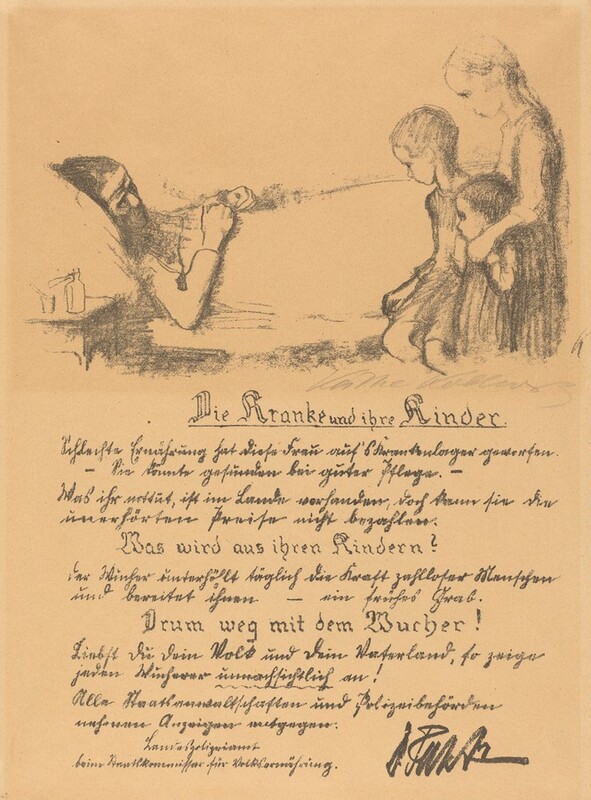 Käthe Kollwitz
Die Kranke und ihre Kinder.
Schlechte Ernährung hat diese Frau auf's Krankenlager geworfen.
— Sie könnte gesunden bei guter Pflege. —
Was ihr nottut, ist im Lande vorhanden, doch kann sie die
unerhörten Preise nicht bezahlen.
Was wird aus ihren Kindern?
Der Wucher unterhöllt täglich die Kraft zahlloser Menschen
und bereitet ihnen — ein frühes Grab.
Drum weg mit dem Wucher!
Liebst Du Dein Volk und Dein Vaterland, so zeige
jeden Wucherer unnachsichtlich an!
Alle Staatsanwaltschaften und Polizeibehörden
nehmen Anzeigen entgegen.
Landespolizeiamt
beim Staatskommissar für Volksernährung.